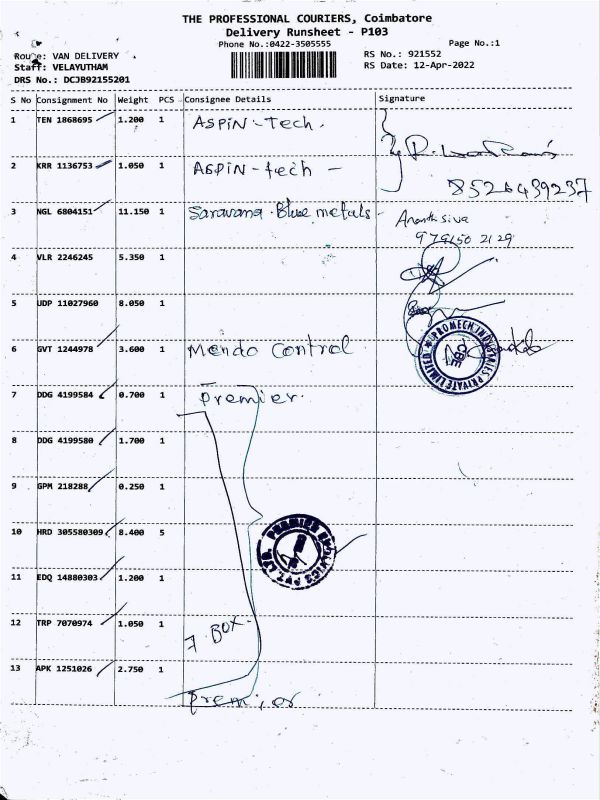 THE PROFESSIONAL COURIERS, Coimbatore
Delivery Runsheet - P103
Phone No.:0422-3505555
Page No.:1
Route: VAN DELIVERY
RS No.: 921552
Staff: VELAYUTHAM
RS Date: 12-Apr-2022
DRS No.: DCJB92155201
S No Consignment No Weight PCS Consignee Details Signature
1 TEN 1868695 1.200 1 ASPIN-Tech.
2 KRR 1136753 1.050 1 ASPIN-tech -
8526439237
3 NGL 6804151 11.150 1 Saravana Blue metals- Ananth siva
979150 2129
4 VLR 2246245 5.350 1
5 UDP 11027960 8.050 1
PROMECH INDUSTRIES PRIVATE LIMITED
CBE
6 GVT 1244978 3.600 1 Mendo Control
7 DDG 4199584 0.700 1 Premier.
8 DDG 4199580 1.700 1
9 GPM 218288 0.250 1
10 HRD 305580309 8.400 5
11 EDQ 14880303 1.200 1
12 TRP 7070974 1.050 1 7 BOX-
13 APK 1251026 2.750 1
Premier